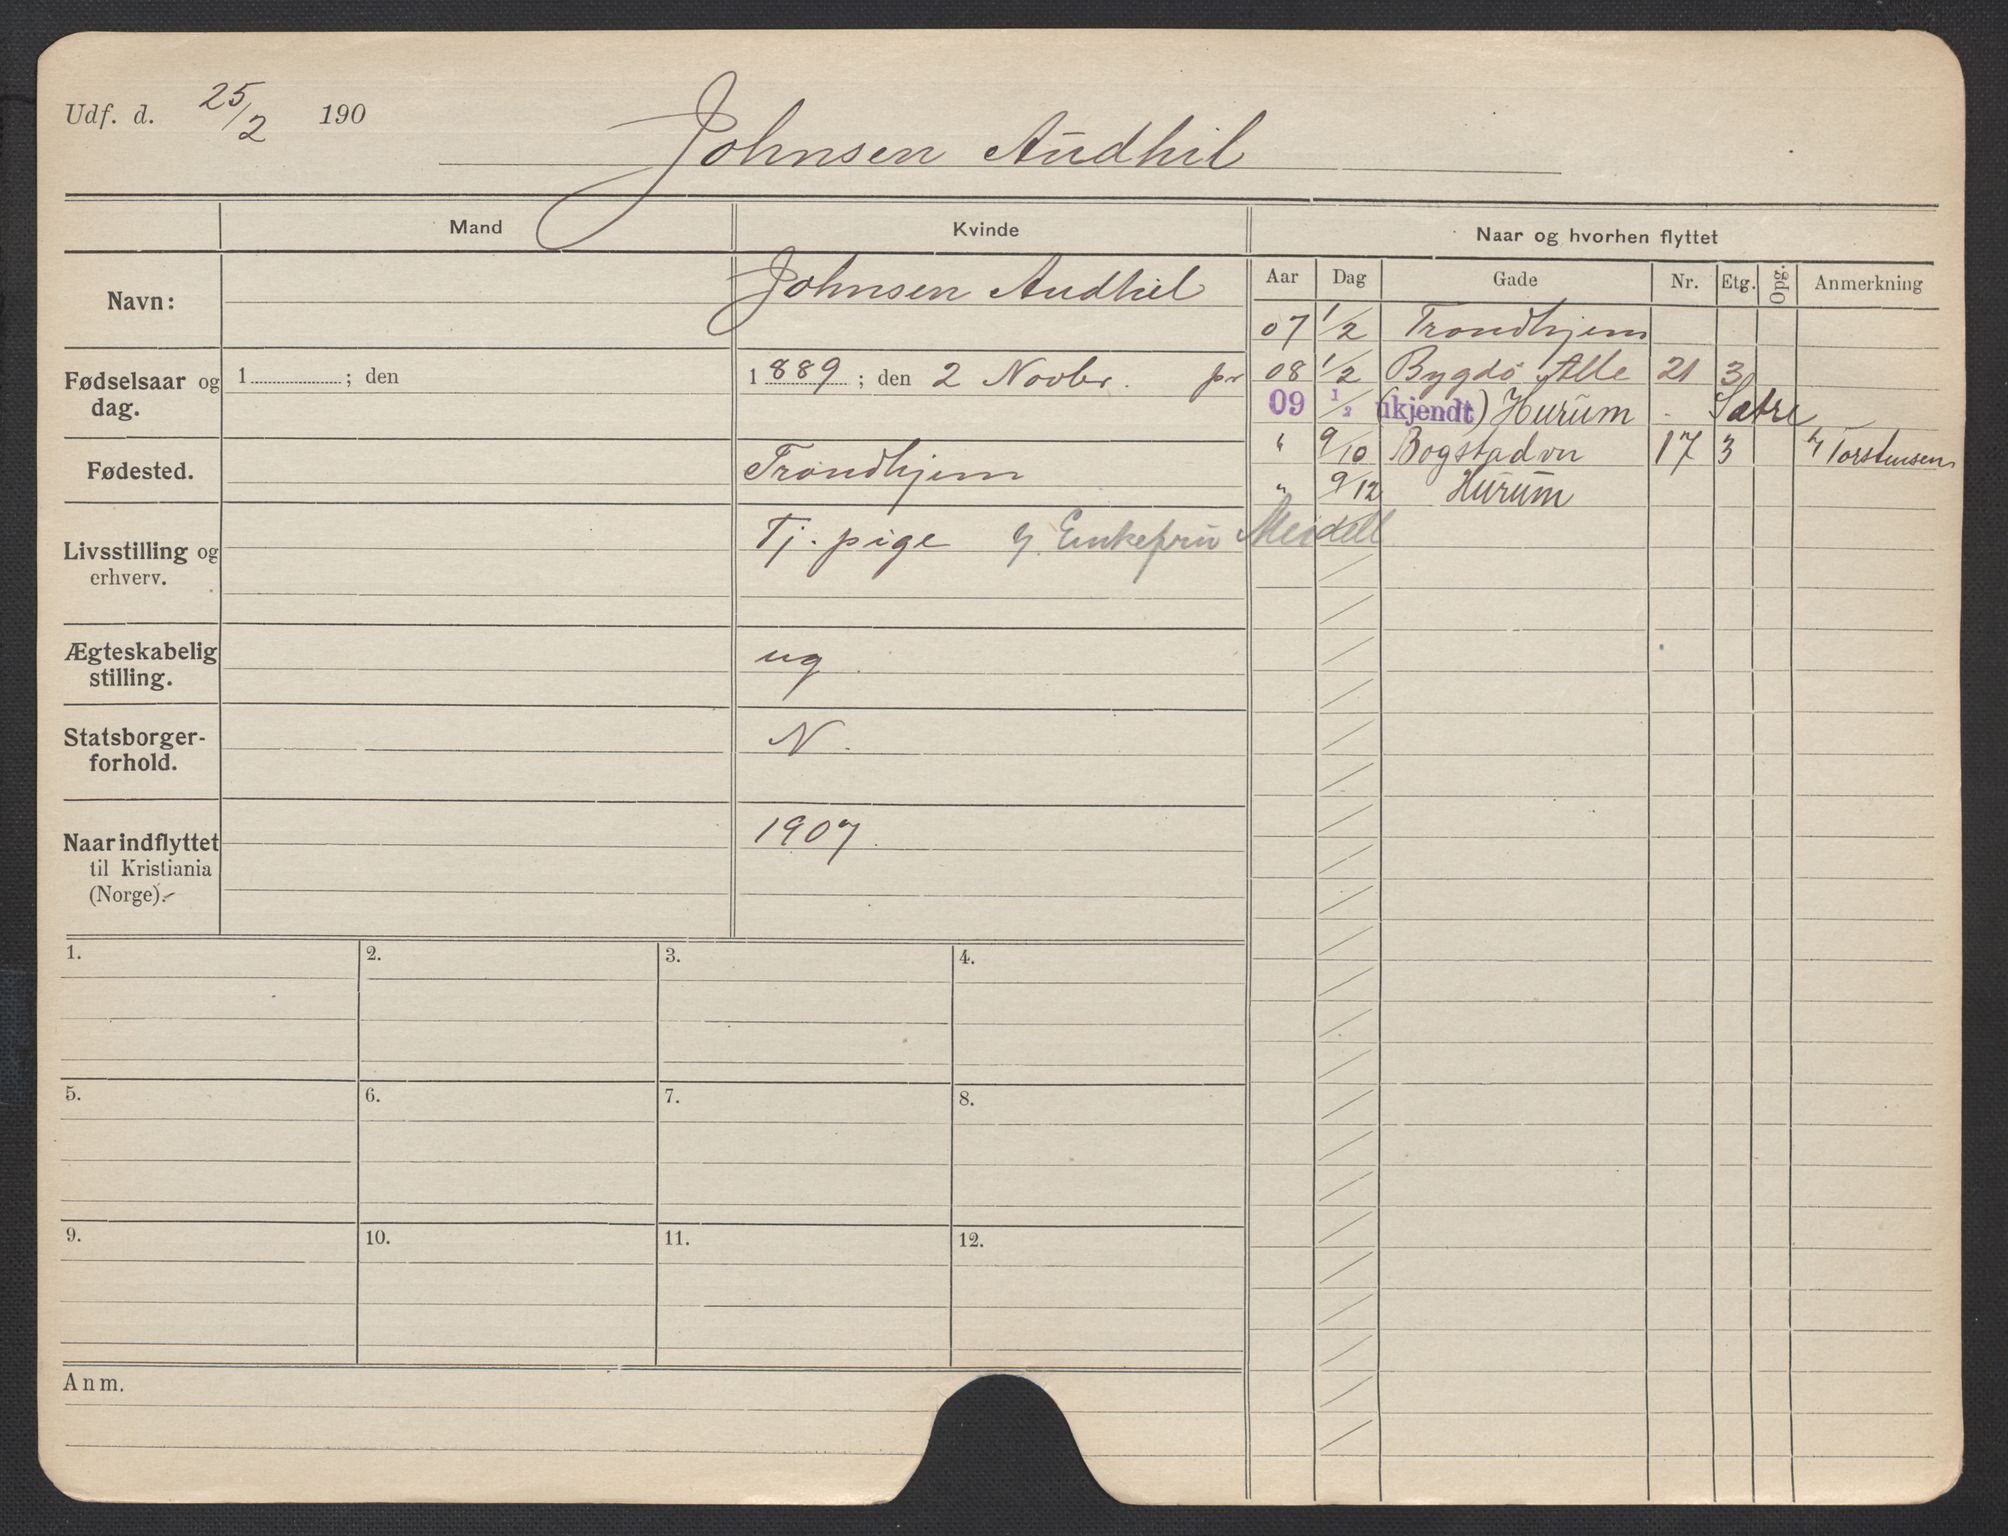 Udf. d. 25/2 190
Johnsen Audhil
Mand
Kvinde
Naar og hvorhen flyttet
Aar Dag Gade Nr. Etg. Opg. Anmerkning
Navn: Johnsen Audhil
07 1/2 Trondhjem
Fødselsaar og dag. 1 ; den
1889 ; den 2 Novbr. pr
08 1/2 Bygdö Alle 21 3
09 1/2 (ukjendt) Hurum Sætre
Fødested. Trondhjem
" 9/10 Bogstadvn 17 3 h/ Torstensen
" 9/12 Hurum
Livsstilling og
erhverv.
Tj. pige h/ Enkefru Meidell
Ægteskabelig
stilling.
ug
Statsborger-
forhold.
N.
Naar indflyttet
til Kristiania
(Norge).
1907
1. 2. 3. 4.
5. 6. 7. 8.
9. 10. 11. 12.
Anm.